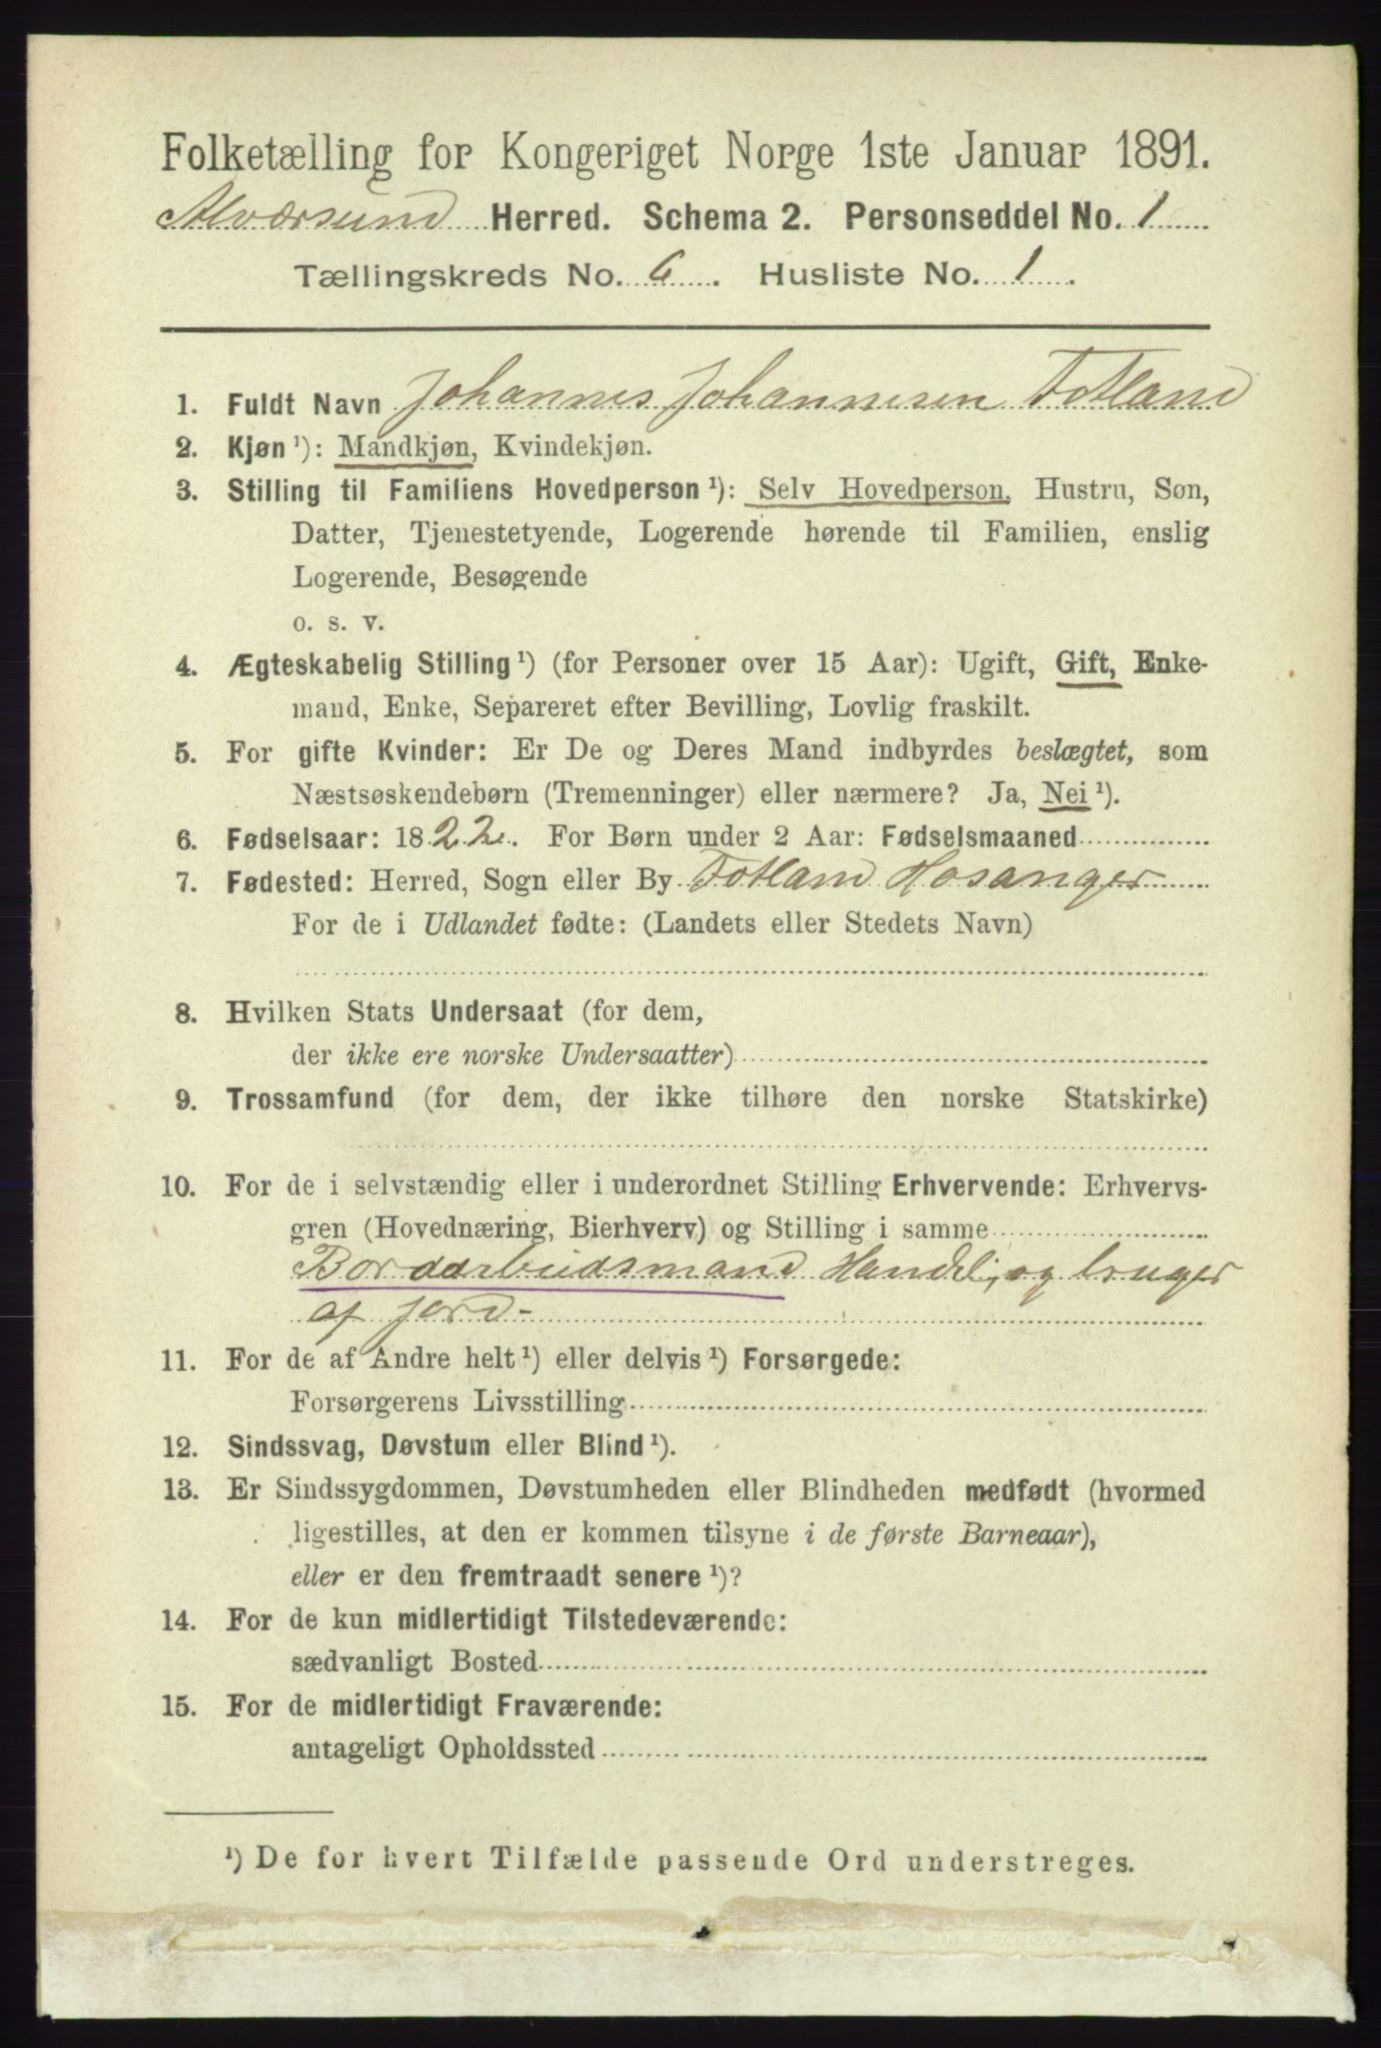 Folketælling for Kongeriget Norge 1ste Januar 1891.
Alværsund Herred. Schema 2. Personseddel No. 1
Tællingskreds No. 6. Husliste No. 1.
1. Fuldt Navn Johannes Johannesen Totland
2. Kjøn¹): Mandkjøn, Kvindekjøn.
3. Stilling til Familiens Hovedperson¹): Selv Hovedperson, Hustru, Søn,
Datter, Tjenestetyende, Logerende hørende til Familien, enslig
Logerende, Besøgende
o. s. v.
4. Ægteskabelig Stilling¹) (for Personer over 15 Aar): Ugift, Gift, Enke-
mand, Enke, Separeret efter Bevilling, Lovlig fraskilt.
5. For gifte Kvinder: Er De og Deres Mand indbyrdes beslægtet, som
Næstsøskendebørn (Tremenninger) eller nærmere? Ja, Nei¹).
6. Fødselsaar: 1822. For Børn under 2 Aar: Fødselsmaaned
7. Fødested: Herred, Sogn eller By Totland Hosanger
For de i Udlandet fødte: (Landets eller Stedets Navn)
8. Hvilken Stats Undersaat (for dem,
der ikke ere norske Undersaatter)
9. Trossamfund (for dem, der ikke tilhøre den norske Statskirke)
10. For de i selvstændig eller i underordnet Stilling Erhvervende: Erhvervs-
gren (Hovednæring, Bierhverv) og Stilling i samme
Handel, og bruger
af jord-
11. For de af Andre helt¹) eller delvis¹) Forsørgede:
Forsørgerens Livsstilling
12. Sindssvag, Døvstum eller Blind¹).
13. Er Sindssygdommen, Døvstumheden eller Blindheden medfødt (hvormed
ligestilles, at den er kommen tilsyne i de første Barneaar),
eller er den fremtraadt senere¹)?
14. For de kun midlertidigt Tilstedeværende:
sædvanligt Bosted
15. For de midlertidigt Fraværende:
antageligt Opholdssted
¹) De for hvert Tilfælde passende Ord understreges.